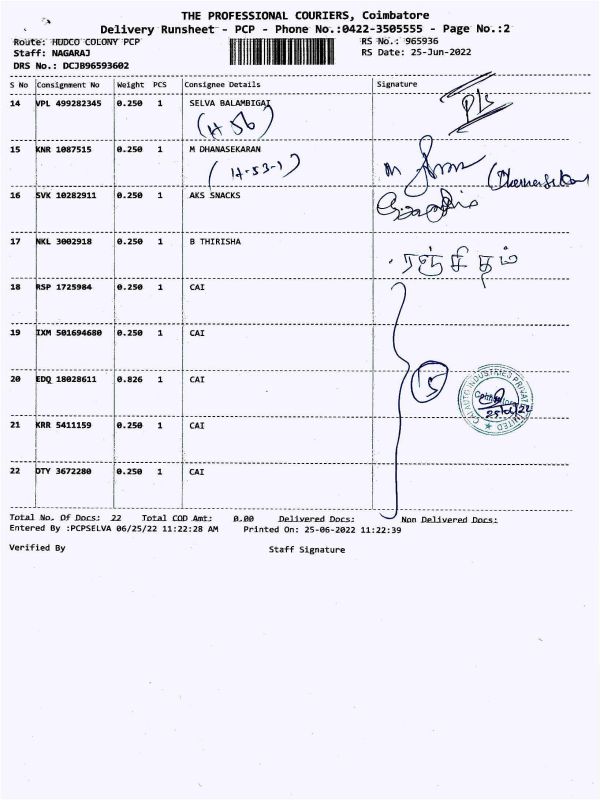 THE PROFESSIONAL COURIERS, Coimbatore
Delivery Runsheet - PCP - Phone No.:0422-3505555 - Page No.:2
Route: HUDCO COLONY PCP RS No.: 965936
Staff: NAGARAJ RS Date: 25-Jun-2022
DRS No.: DCJB96593602
S No Consignment No Weight PCS Consignee Details Signature
14 VPL 499282345 0.250 1 SELVA BALAMBIGAI
(H 56)
15 KNR 1087515 0.250 1 M DHANASEKARAN
(H-53-1)
16 SVK 10282911 0.250 1 AKS SNACKS
17 NKL 3002918 0.250 1 B THIRISHA
ரஞ்சிதம்
18 RSP 1725984 0.250 1 CAI
19 IXM 501694680 0.250 1 CAI
20 EDQ 18028611 0.826 1 CAI
5
CAI AUTO INDUSTRIES PRIVATE LIMITED
21 KRR 5411159 0.250 1 CAI
22 OTY 3672280 0.250 1 CAI
Total No. Of Docs: 22 Total COD Amt: 0.00 Delivered Docs: Non Delivered Docs:
Entered By :PCPSELVA 06/25/22 11:22:28 AM Printed On: 25-06-2022 11:22:39
Verified By Staff Signature